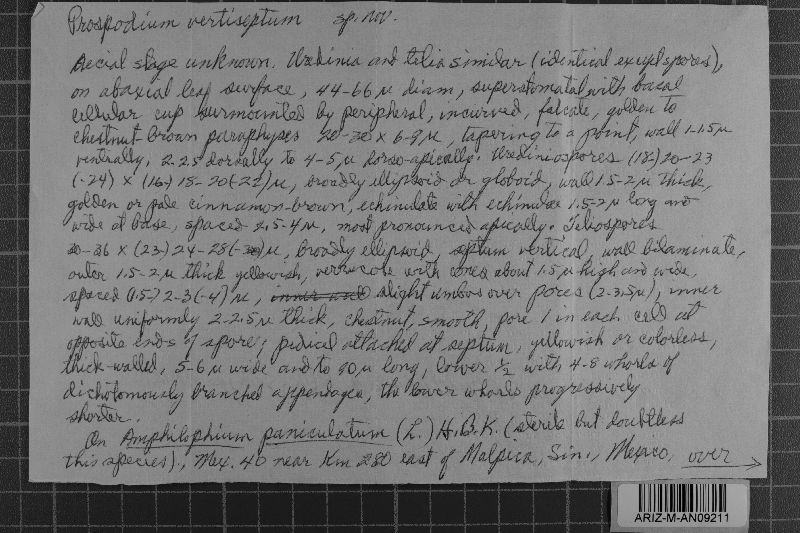 Prospodium vertiseptum sp. nov.
Aecial stage unknown. Uredinia and telia similar (identical except spores),
on abaxial leaf surface, 44-66 μ diam, superstomatal with basal
cellular cup surmounted by peripheral, incurved, falcate, golden to
chestnut-brown paraphyses 20-30 x 6-9 μ, tapering to a point, wall 1-1.5 μ
ventrally, 2-2.5 dorsally to 4-5 μ dorso-apically. Urediniospores (18-) 20-23
(-24) x (16-) 18-20 (-22) μ, broadly ellipsoid or globoid, wall 1.5-2 μ thick,
golden or pale cinnamon-brown, echinulate with echinulae 1.5-2 μ long and
wide at base, spaced 2.5-4 μ, most pronounced apically. Teliospores
30-36 x (23-) 24-28 (-30) μ, broadly ellipsoid, septum vertical, wall bilaminate,
outer 1.5-2 μ thick yellowish, verrucose with cones about 1.5 μ high and wide,
spaced (1.5-) 2-3 (-4) μ, inner wall slight umbos over pores (2-3.5 μ), inner
wall uniformly 2-2.5 μ thick, chestnut, smooth, pore 1 in each cell at
opposite ends of spore; pedicel attached at septum, yellowish or colorless,
thick-walled, 5-6 μ wide and to 90 μ long, lower 1/2 with 4-8 whorls of
dichotomously branched appendages, the lower whorls progressively
shorter.
On Amphilophium paniculatum (L.) H.B.K. (sterile but doubtless
this species)., Mex. 40 near Km 280 east of Malpica, Sin., Mexico, over
ARIZ-M-AN09211